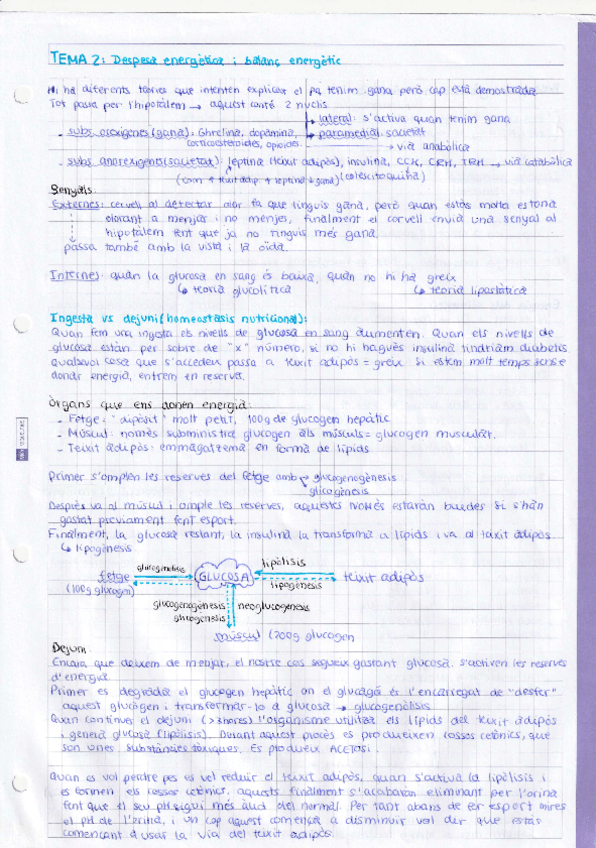 TEMA 2: Despesa energètica i balanç energètic
Hi ha diferents teories que intenten explicar el pq tenim gana però cap està demostrada
Tot passa per l'hipotàlem → aquest conté 2 nuclis
lateral: s'activa quan tenim gana
- subs. orexigenes (gana): Ghrelina, dopamina, paramedial: sacietat
corticosteroides, opioides. → via anabòlica
- subs anorexigens (sacietat): leptina (teixit adipós), insulina, CCK, CRH, TRH → via catabòlica
(com + teixit adip. + leptina ↓ gana) (colescitoquina)
Senyals:
Externes: cervell al detectar olor fa que tinguis gana, però quan estàs molta estona
olorant a menjar i no menjes, finalment el cervell envia una senyal al
hipotàlem fent que ja no tinguis més gana.
passa també amb la vista i la oïda.
Internes: quan la glucosa en sang és baixa, quan no hi ha greix
↳ teoria glucolítica ↳ teoria lipostàtica
Ingesta vs dejuni (homeostasis nutricional):
Quan fem una ingesta els nivells de glucosa en sang augmenten. Quan els nivells de
glucosa estàn per sobre de "x" número, si no hi hagués insulina tindriam diabetis.
Qualsevol cosa que s'accedeix passa a teixit adipós = greix. Si estem molt temps sense
donar energia, entrem en reserva.
Òrgans que ens donen energia:
- Fetge: "dipòsit" molt petit, 100g de glucogen hepàtic
- Múscul: només subministra glucogen als músculs = glucogen muscular.
- Teixit adipós: emmagatzema en forma de lípids
Primer s'omplen les reserves del fetge amb → glucogenogènesis
glicogènesis
Després va al múscul i omple les reserves, aquestes només estaràn buides si s'han
gastat previament fent esport.
Finalment, la glucosa restant, la insulina la transforma a lípids i va al teixit adipós
↳ lipogènesis
fetge glucogenolisis GLUCOSA lipòlisis teixit adipós
(100g glucogen) lipogènesis
glucogenogènesis neoglucogenesis
glicogènesis
múscul (200g glucogen
Dejuni:
Encara que deixem de menjar, el nostre cos segueix gastant glucosa. s'activen les reserves
d'energia.
Primer es degrada el glucogen hepàtic on el glucagó és l'encarregat de "desfer"
aquest glucògen i transformar-lo a glucosa → glucogenòlisis
Quan continues el dejuni (>3hores) l'organisme utilitza els lípids del teixit adipós
i genera glucosa (lipòlisis). Durant aquest procés es produeixen cossos cetònics, que
són unes substàncies tòxiques. Es produeix ACETOSI.
Quan es vol perdre pes es vol reduir el teixit adipós, quan s'activa la lipòlisis i
es formen els cossos cetònics, aquests finalment s'acabaràn eliminant per l'orina
fent que el seu pH sigui més àcid del normal. Per tant abans de fer esport mires
el pH de l'orina, i un cop aquest comença a disminuir vol dir que estàs
començant a usar la via del teixit adipós.